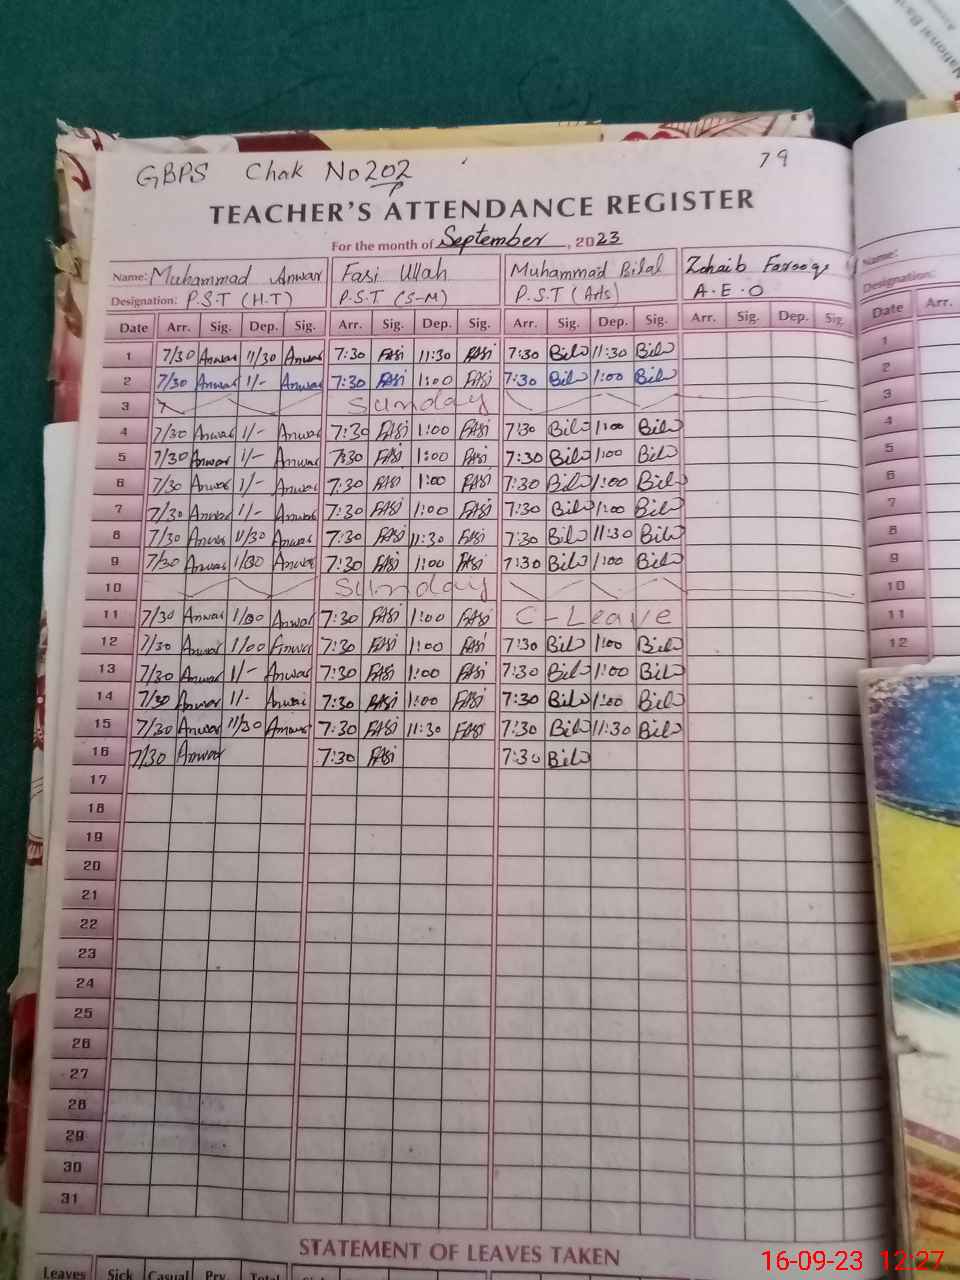 National Bank
GBPS Chak No 202
79
TEACHER'S ATTENDANCE REGISTER
For the month of September, 2023
Name: Muhammad Anwar Fasi Ullah Muhammad Bilal Zohaib Farooqe
Designation: P.S.T (H.T) P.S.T (S-M) P.S.T (Arts) A.E.O
Date Arr. Sig. Dep. Sig. Arr. Sig. Dep. Sig. Arr. Sig. Dep. Sig. Arr. Sig. Dep. Sig.
1 7/30 Anwar 11/30 Anwar 7:30 FASi 11:30 FASi 7:30 Bilo 11:30 Bilo
2 7/30 Anwar 1/- Anwar 7:30 FASi 1:00 FASi 7:30 Bilo 1:00 Bilo
3 Sunday
4 7/30 Anwar 1/- Anwar 7:30 FASi 1:00 FASi 7:30 Bilo 1:00 Bilo
5 7/30 Anwar 1/- Anwar 7:30 FASi 1:00 FASi 7:30 Bilo 1:00 Bilo
6 7/30 Anwar 1/- Anwar 7:30 FASi 1:00 FASi 7:30 Bilo 1:00 Bilo
7 7/30 Anwar 1/- Anwar 7:30 FASi 1:00 FASi 7:30 Bilo 1:00 Bilo
8 7/30 Anwar 11/30 Anwar 7:30 FASi 11:30 FASi 7:30 Bilo 11:30 Bilo
9 7/30 Anwar 1/00 Anwar 7:30 FASi 1:00 FASi 7:30 Bilo 1:00 Bilo
10 Sunday
11 7/30 Anwar 1/00 Anwar 7:30 FASi 1:00 FASi C-Leave
12 7/30 Anwar 1/00 Anwar 7:30 FASi 1:00 FASi 7:30 Bilo 1:00 Bilo
13 7/30 Anwar 1/- Anwar 7:30 FASi 1:00 FASi 7:30 Bilo 1:00 Bilo
14 7/30 Anwar 1/- Anwar 7:30 FASi 1:00 FASi 7:30 Bilo 1:00 Bilo
15 7/30 Anwar 11/30 Anwar 7:30 FASi 11:30 FASi 7:30 Bilo 11:30 Bilo
16 7/30 Anwar 7:30 FASi 7:30 Bilo
17
18
19
20
21
22
23
24
25
26
27
28
29
30
31
STATEMENT OF LEAVES TAKEN
Leaves Sick Casual Prv. Total
Name:
Designation:
Date Arr.
1
2
3
4
5
6
7
8
9
10
11
12
16-09-23 12:27